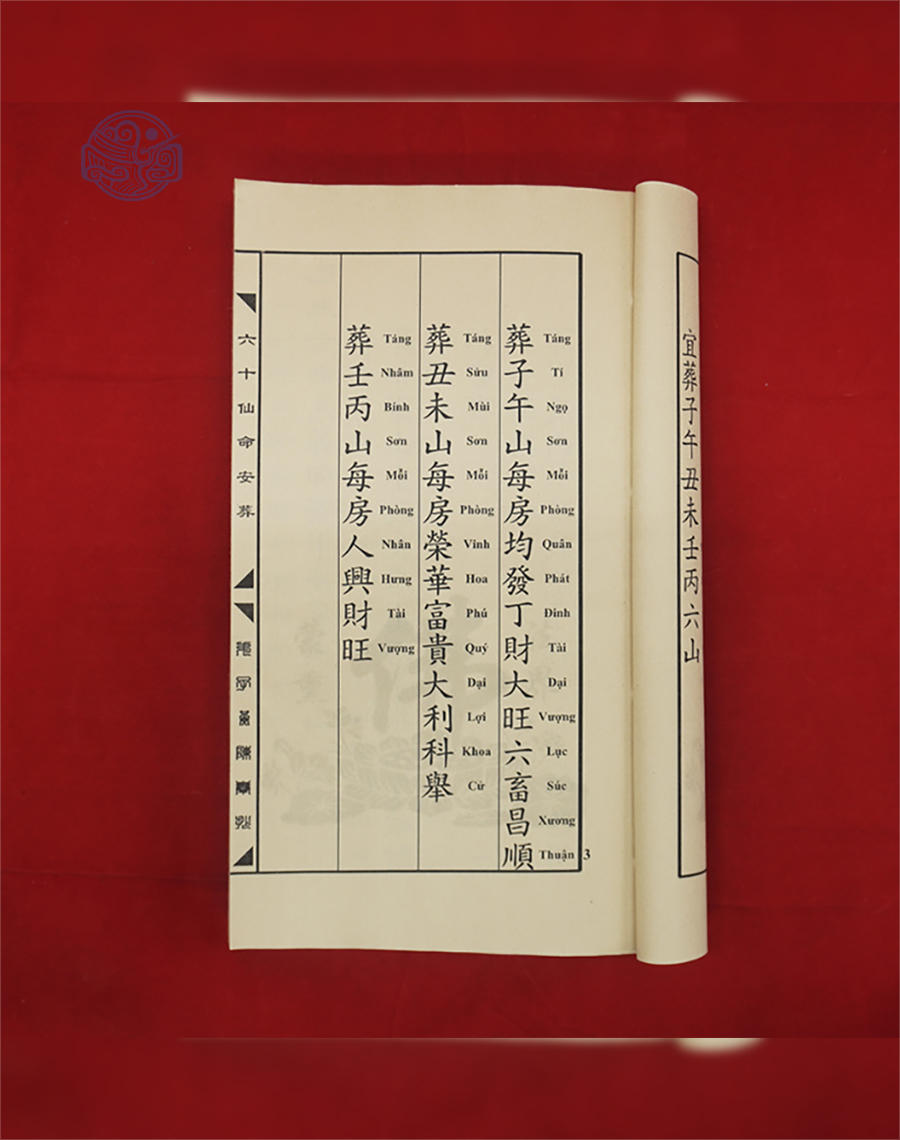 宜葬子午丑未壬丙六山
Táng Tí Ngọ Sơn Mỗi Phòng Quân Phát Đinh Tài Đại Vượng Lục Súc Xương Thuận
葬子午山每房均發丁財大旺六畜昌順
Táng Sửu Mùi Sơn Mỗi Phòng Vinh Hoa Phú Quý Đại Lợi Khoa Cử
葬丑未山每房榮華富貴大利科舉
Táng Nhâm Bính Sơn Mỗi Phòng Nhân Hưng Tài Vượng
葬壬丙山每房人興財旺
六十仙命安葬
3